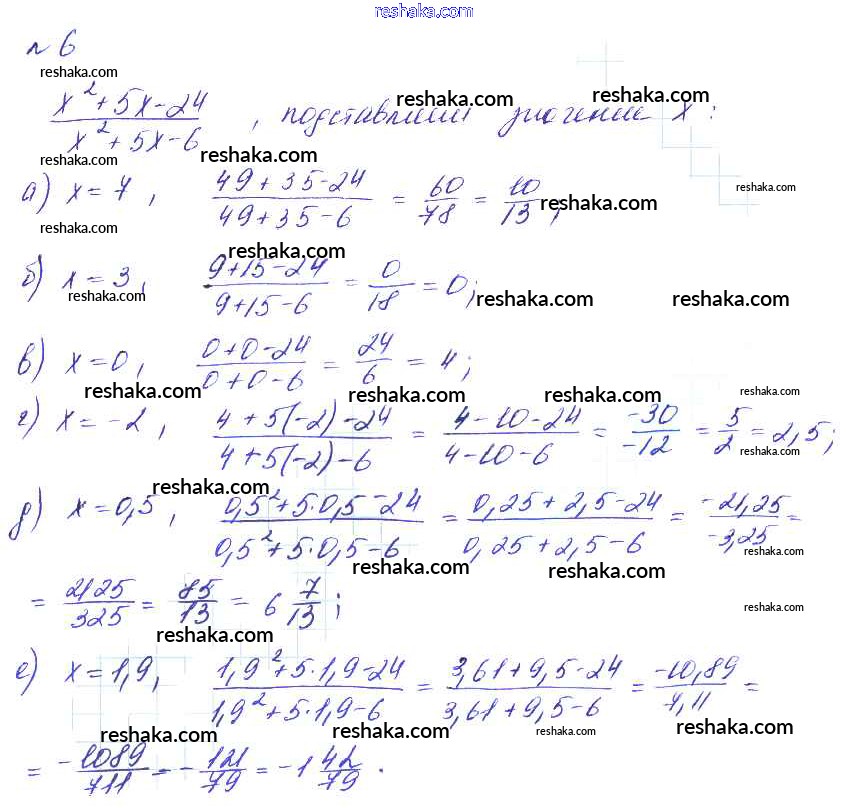 reshaka.com
№ 6
reshaka.com
(x² + 5x - 24)/(x² + 5x - 6), подставляем значение x:
reshaka.com reshaka.com
reshaka.com
а) x = 7, (49 + 35 - 24)/(49 + 35 - 6) = 60/78 = 10/13;
reshaka.com reshaka.com
reshaka.com
reshaka.com
б) x = 3, (9 + 15 - 24)/(9 + 15 - 6) = 0/18 = 0;
reshaka.com reshaka.com reshaka.com
в) x = 0, (0 + 0 - 24)/(0 + 0 - 6) = 24/6 = 4;
reshaka.com reshaka.com reshaka.com
г) x = -2, (4 + 5(-2) - 24)/(4 + 5(-2) - 6) = (4 - 10 - 24)/(4 - 10 - 6) = -30/-12 = 5/2 = 2,5;
reshaka.com
reshaka.com
д) x = 0,5, (0,5² + 5·0,5 - 24)/(0,5² + 5·0,5 - 6) = (0,25 + 2,5 - 24)/(0,25 + 2,5 - 6) = -21,25/-3,25 =
reshaka.com
reshaka.com reshaka.com
= 2125/325 = 85/13 = 6 7/13;
reshaka.com
reshaka.com
е) x = 1,9, (1,9² + 5·1,9 - 24)/(1,9² + 5·1,9 - 6) = (3,61 + 9,5 - 24)/(3,61 + 9,5 - 6) = -10,89/7,11 =
reshaka.com reshaka.com reshaka.com
= -1089/711 = -121/79 = -1 42/79.